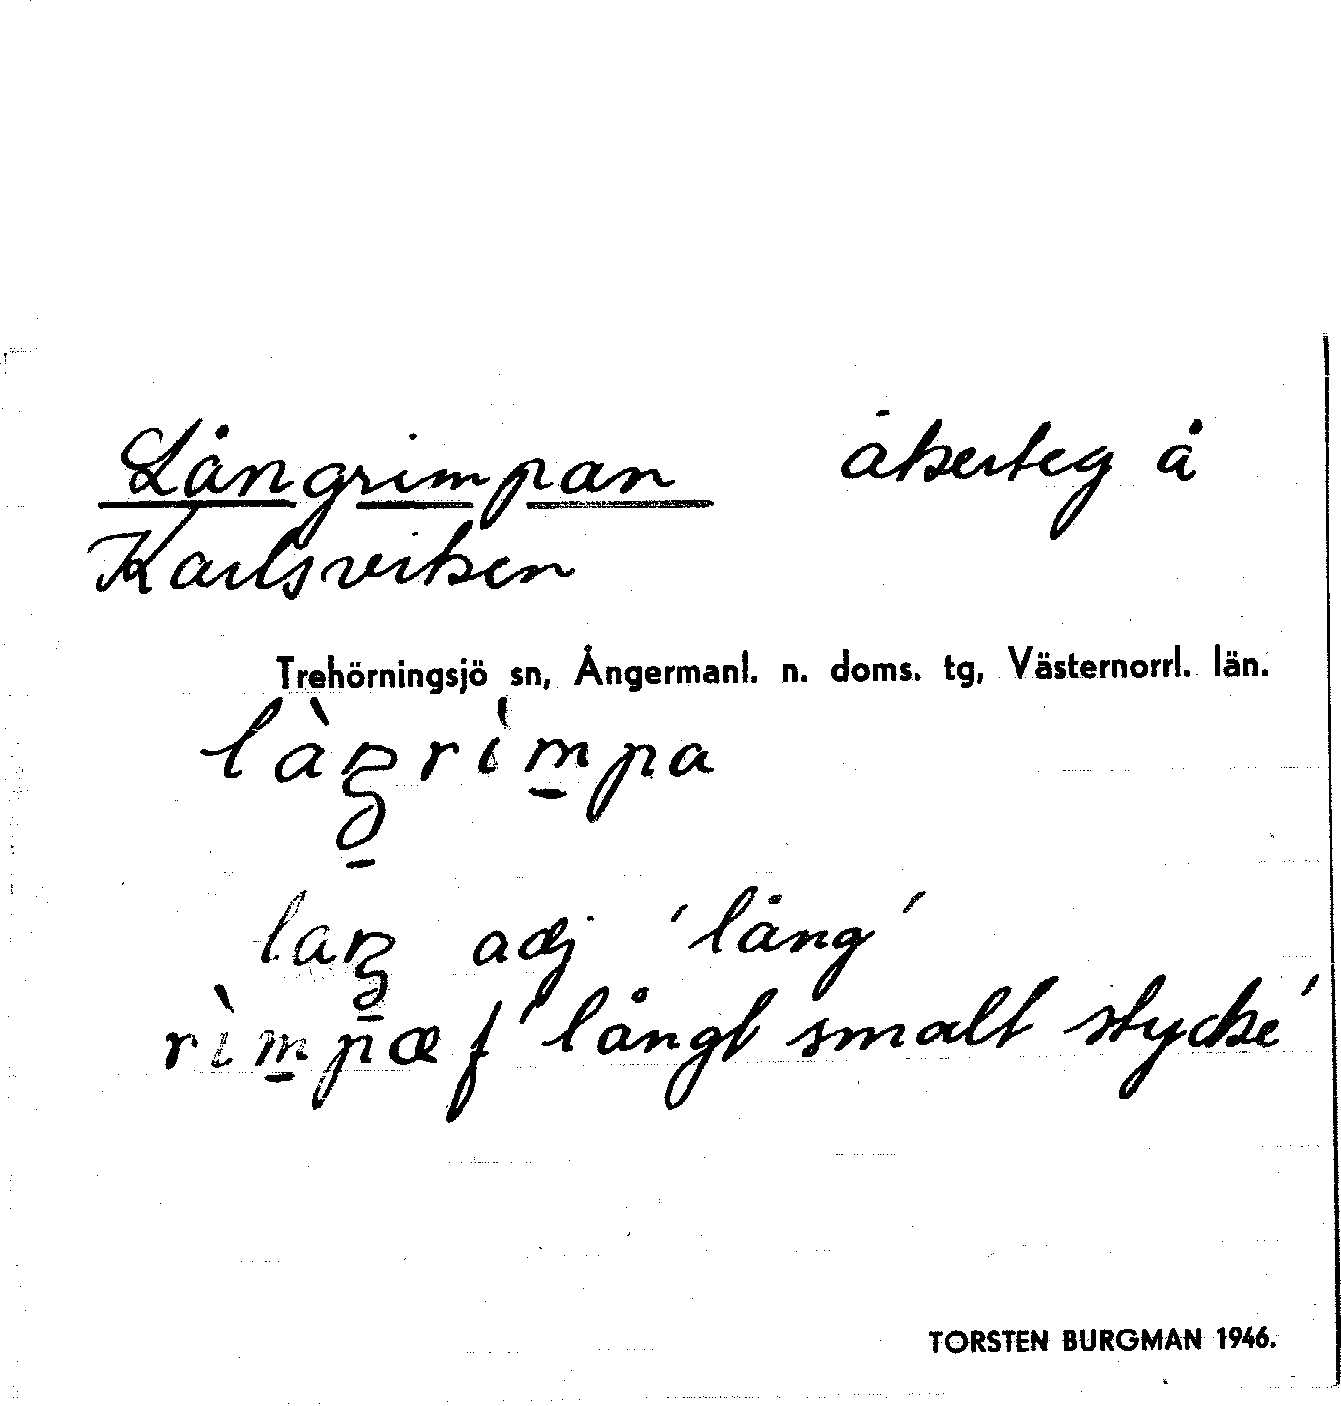 Långrimpan åkerteg å
Karlsviken
Trehörningsjö sn, Ångermanl. n. doms. tg, Västernorrl. län.
làŋ̲rìm̲pa
laŋ̲ adj 'lång'
rìm̲pæ f 'långt smalt stycke'
TORSTEN BURGMAN 1946.